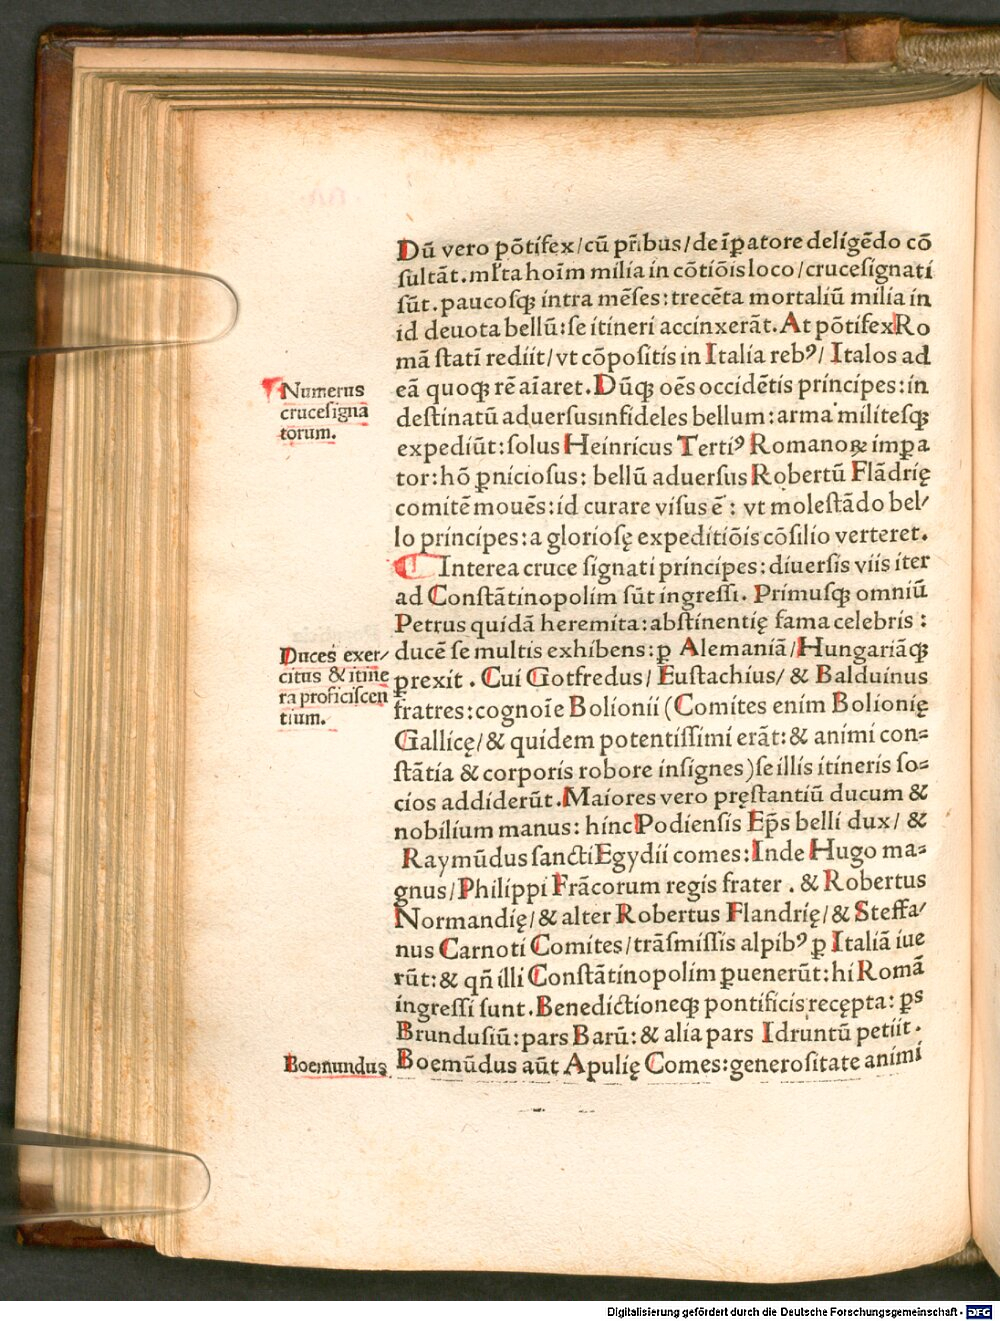 Dū vero põtifex/cū pr̄ibus/de īꝑatore deligēdo cõ
ſultāt.ml'ta hoīm milia in cõtiõis loco/cruceſignati
ſūt.paucoſqꝫ intra mēſes:trecēta mortaliū milia in
id deuota bellū:ſe itineri accinxerāt.At põtifex Ro
mā ſtatī rediit/vt cõpoſitis in Italia rebꝰ/Italos ad
eā quoqꝫ rē aīaret.Dūqꝫ oēs occidētis principes:in
deſtinatū aduerſus infideles bellum:arma militeſqꝫ
expediūt:ſolus Heinricus Tertiꝰ Romanoꝝ imꝑa
tor:hõ ꝑnicioſus:bellū aduerſus Robertū Flādrię
comitē mouēs:id curare viſus ē:vt moleſtādo bel/
lo principes:a glorioſę expeditiõis cõſilio verteret.
¶ Interea cruce ſignati principes:diuerſis viis iter
ad Conſtātinopolim ſūt ingreſſi. Primuſqꝫ omniū
Petrus quidā heremita:abſtinentię fama celebris:
ducē ſe multis exhibens:ꝑ Alemaniā/Hungariāqꝫ
ꝑrexit. Cui Gotfredus/Euſtachius/& Balduinus
fratres:cognoīe Bolionii (Comites enim Bolionię
Gallicę/& quidem potentiſſimi erāt:& animi con=
ſtātia & corporis robore inſignes)ſe illis itineris ſo=
cios addiderūt.Maiores vero pręſtantiū ducum &
nobilium manus:hinc Podienſis Ep̄s belli dux/&
Raymūdus ſancti Egydii comes:Inde Hugo ma=
gnus/Philippi Frācorum regis frater.& Robertus
Normandię/& alter Robertus Flandrię/& Steffa/
nus Carnoti Comites/trāſmiſſis alpibꝰ ꝑ Italiā iue
rūt:& qñ illi Conſtātinopolim ꝑuenerūt:hi Romā
ingreſſi ſunt.Benedictioneqꝫ pontificis recępta:ꝑs
Brunduſiū:pars Barū:& alia pars Idruntū petiit.
Boemūdus aūt Apulię Comes:generoſitate animi
¶ Numerus
cruceſigna
torum.
Duces exer/
citus & itine
ra proficiſcen
tium.
Boemundus
Digitalisierung gefördert durch die Deutsche Forschungsgemeinschaft - DFG